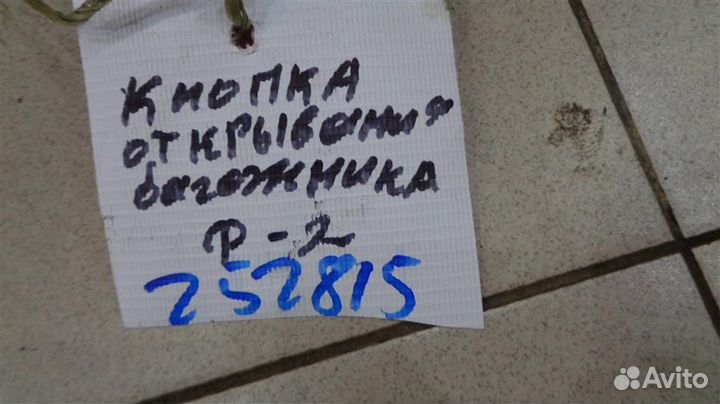 Кнопка
открывания
багажника
Р-2
252815
Avito